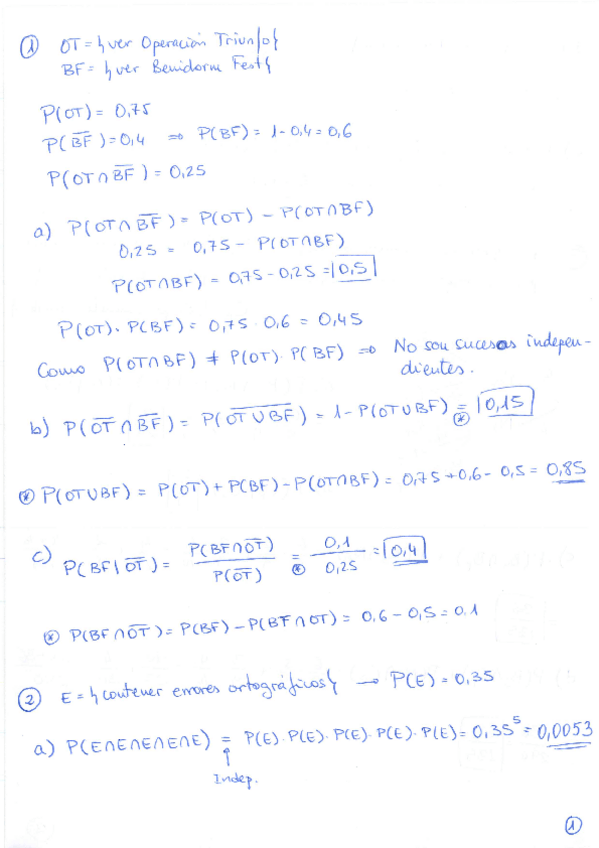 ① OT = {ver Operación Triunfo}
BF = {ver Benidorm Fest}
P(OT) = 0,75
P(B̅F̅) = 0,4 ⇒ P(BF) = 1 - 0,4 = 0,6
P(OT ∩ B̅F̅) = 0,25
a) P(OT ∩ B̅F̅) = P(OT) - P(OT∩BF)
0,25 = 0,75 - P(OT∩BF)
P(OT∩BF) = 0,75 - 0,25 = 0,5
P(OT) · P(BF) = 0,75 · 0,6 = 0,45
Como P(OT∩BF) ≠ P(OT) · P(BF) ⇒ No son sucesos indepen-
dientes.
b) P(O̅T̅ ∩ B̅F̅) = P(O̅T̅ ̅U̅ ̅B̅F̅) = 1 - P(OT∪BF) = 0,15
⊛
⊛ P(OT∪BF) = P(OT) + P(BF) - P(OT∩BF) = 0,75 + 0,6 - 0,5 = 0,85
c) P(BF | O̅T̅) = P(BF∩O̅T̅) / P(O̅T̅) = 0,1 / 0,25 = 0,4
⊛
⊛ P(BF∩O̅T̅) = P(BF) - P(BF∩OT) = 0.6 - 0,5 = 0.1
② E = {contener errores ortográficos} → P(E) = 0,35
a) P(E∩E∩E∩E∩E) = P(E)·P(E)·P(E)·P(E)·P(E) = 0,35⁵ = 0,0053
↑
Indep.
①